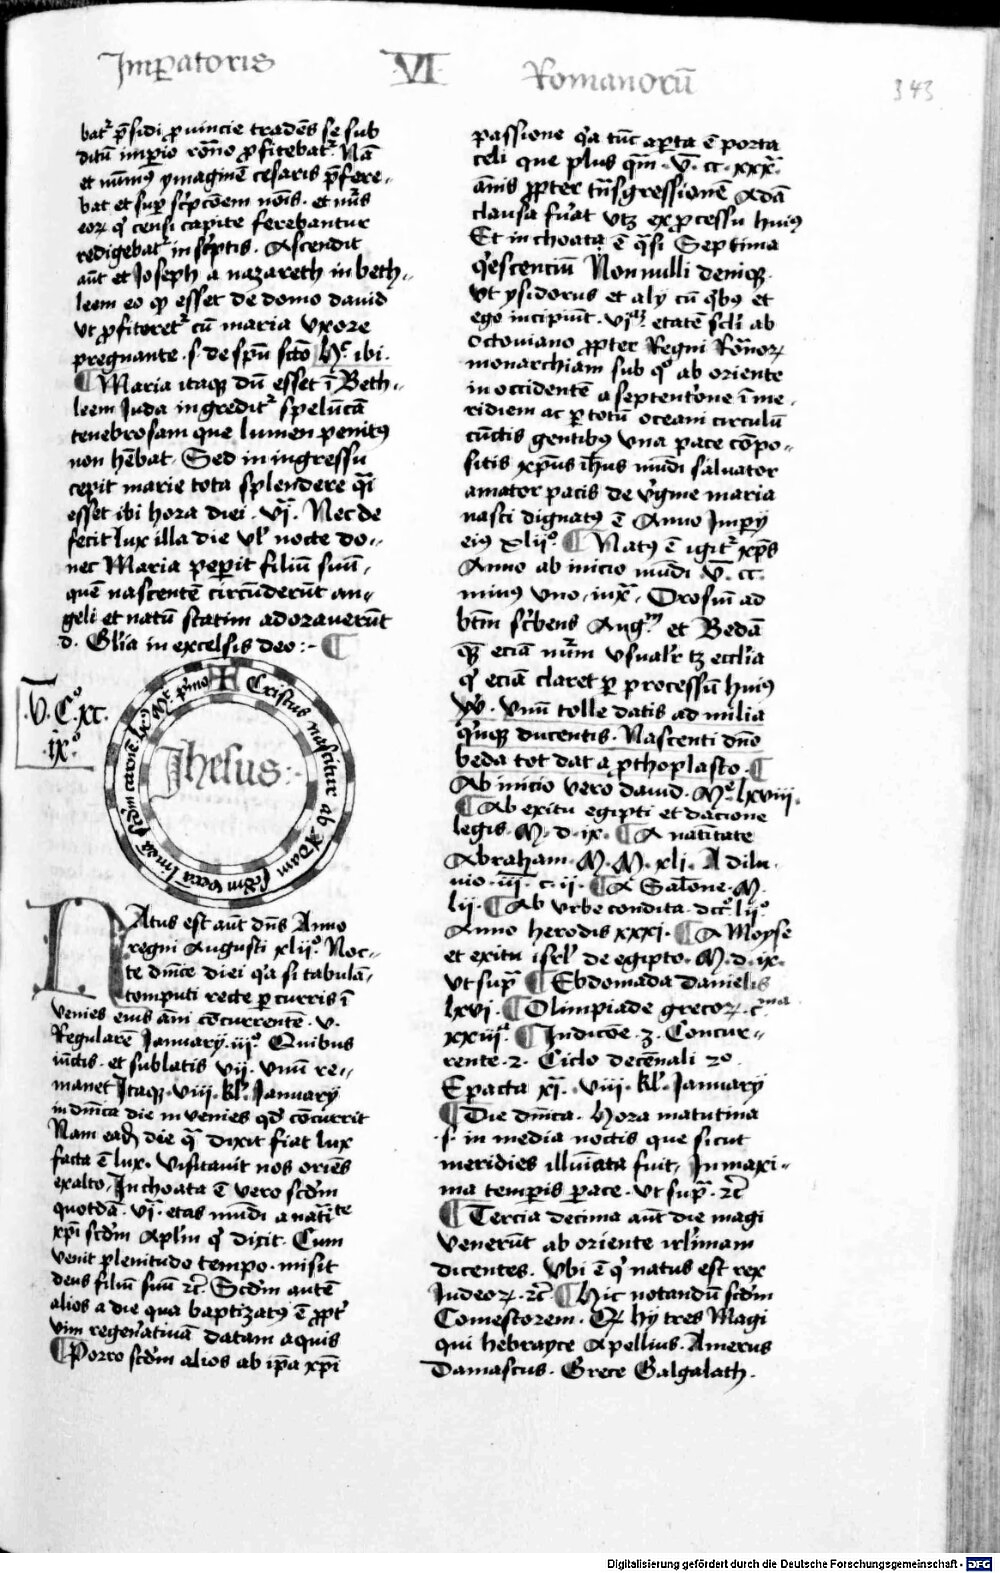 Imp̱atoris VI Romanorū
343
batᷣ p̄sidi ꝓuincie tradēs se sub
ditū imperio rōno ꝓfitebatᷣ. Nā
et nūmꝰ ymaginē cesaris p̄fere-
bat et suꝑ sc̓pcōem nōis. et nūs
eoꝝ qͥ censi capite ferebantur
redigebatᷣ in sc̓ptis. Ascendit
aūt et Joseph a nazareth in beth-
leem eo ꝙ esset de domo dauid
vt ꝓfiteretᷣ cū maria vxore
pregnante .s. de spū scto Hᷓ ibi.
¶ Maria itaqꝫ dū esset ī Beth-
leem Juda ingreditᷣ spelūcā
tenebrosam que lumen penitꝰ
non hēbat. Sed in ingressu
cepit marie tota splendere qͣi
esset ibi hora diei .vjͣ. Nec de
fecit lux illa die vl̓ nocte do-
nec Maria peꝑit filiū suū,
quē nascentē circūderūt an-
geli et natū statim adorauerūt
d. Gl̓ia in excelsis deo :- ¶
.v̄.C.xc.
.ix°.
✠ Cristus nascitur ab Adam scd̓m verā lineā scd̓m carnē
Jhesus:-
NAtus est aūt dn̄s Anno
regni Augusti xlij°. Noc-
te dnīce diei qͣ si tabulā
computi recte ꝑcurris ī
venies eius āni cōcurrentē .v.
Regularē Januarij .iij°. Quibus
iūctis. et sublatis vij. vnū re-
manet Itaqꝫ .viij. kl̓. Januarij
in dnīca die invenies qd̓ cōcurrit
Nam eadē die qͣ dixit fiat lux
facta ē lux. visitauit nos oriēs
exalto. Inchoata ē vero scd̓m
quosdā .vjͣ. etas mūdi a natiᵗᵉ
xp̄i scd̓m Apl̓m qͥ dixit. Cum
venit plenitudo tempoꝛ. misit
deus filiū suū ⁊c̄. Scd̓m autē
alios a die qua baptizatꝰ ē ꝓpt̓
vim regen̓atiuā datam aquis
¶ Porro scd̓m alios ab ip̄a xp̄i
passione qͣ tūc aꝑta ē porta
celi que plus qͣm .v̄. cc. xxxͣ.
ānis ꝓpter tn̄sgressionē Adā
clausa fu̓at vtꝫ ex ꝓcessu huiꝰ
Et inchoata ē qͣsi Septima
qͥescenciū Nonnulli deniqꝫ
vt ysidorus et alij cū qͥbꝰ et
ego incipiūt .vjͣ. etatē scl̓i ab
octouiano ꝓpter Regni Rōnoꝝ
monarchiam sub qͦ ab oriente
in occidentē a septentͥone ī me-
ridiem ac ꝑ totū oceani circulū
cūctis gentibꝰ vna pace cōpo-
sitis xp̄us ih̄us mūdi saluator
amator pacis de v̓gine maria
nasci dignatꝰ ē Anno Imperij
eiꝰ xlij°. ¶ Natꝰ ē igitᷣ xp̄s
Anno ab inicio mūdi .v̄. cc.
minꝰ vno. iuxͣ. Orosiū ad
btm̄ sc̓bens Augᵐ et Bedā
qͣꝫ eciā nūm vsual̓r tꝫ eccl̓ia
qͥ eciā claret ꝑ processū huiꝰ
vnū tolle datis ad milia
qͥnqꝫ ducentis. Nascenti dn̄o
beda tot dat a ꝓthoplasto. ¶
Ab inicio vero dauid. Mᵉ. lxviij.
¶ Ab exitu egipti et dacione
legis. M. d. ix. ¶ A natītate
Abraham. M. M. xlj. A dilu-
uio .iij̄. c. ij. ¶ A Salōne. M.
lij. ¶ Ab vrbe condita. dcc°. lij°.
Anno herodis xxxj. ¶ A Moyse
et exitu isrl̓ de egipto. M. d. ix.
vt supͣ ¶ Ebdomada danielis
lxvj. ¶ Olimpiade grecoꝝ. cͫᵃ
xxiijͣ. ¶ Indicōe .3. Concur-
rente .2. Ciclo decēnali 20
Epacta xj. viij. kl̓. Januarij
¶ Die dnīca. Hora matutina
.s. in media noctis que sicut
meridies illuīata fuit, In maxi-
ma temꝑis pace. vt supͣ. ⁊c̄
¶ Tercia decima aūt die magi
venerūt ab oriente irl̓imam
dicentes. Vbi ē qͥ natus est rex
Judeoꝝ. ⁊c̄. ¶ Hic notandū scd̓m
Comestorem. Qꝛ hij tres Magi
qui hebrayce Apellius. Amerus
Damascus. Grece Galgalath.
Digitalisierung gefördert durch die Deutsche Forschungsgemeinschaft - DFG